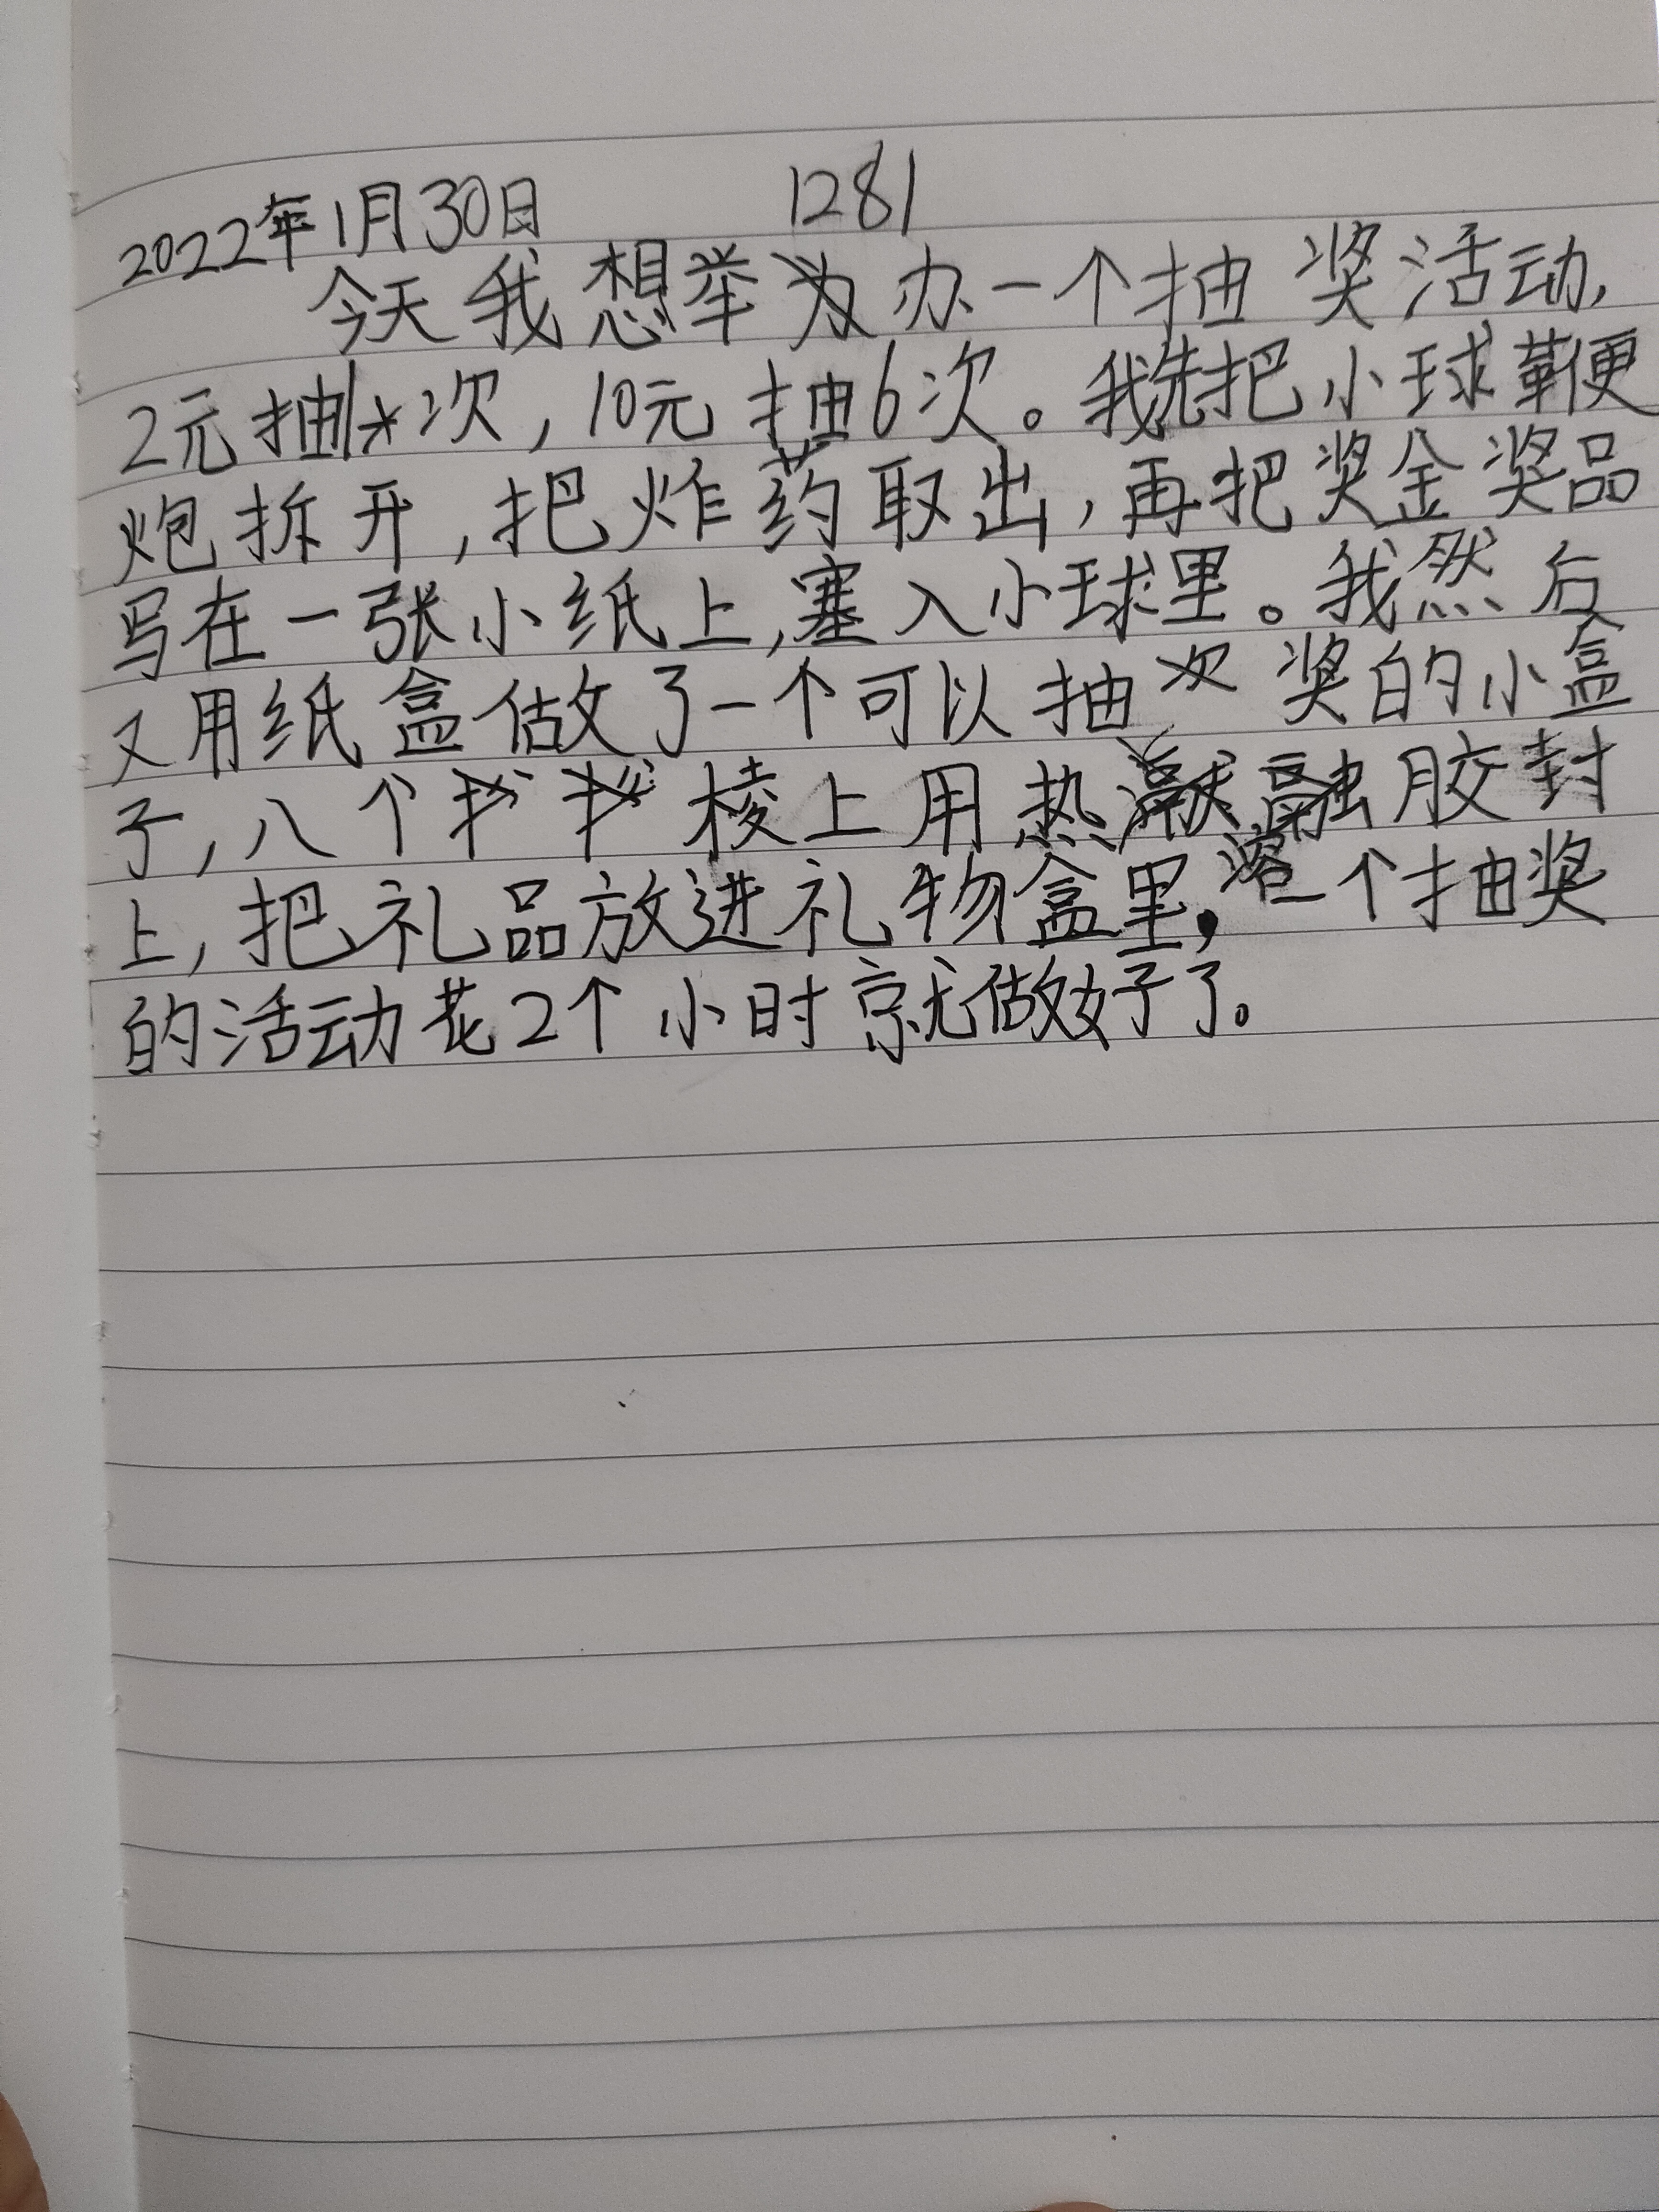 2022年1月30日 1281
今天我想举办一个抽奖活动,
2元抽1次,10元抽6次。我先把小球鞭
炮拆开,把炸药取出,再把奖金奖品
写在一张小纸上,塞入小球里。我然后
又用纸盒做了一个可以抽奖的小盒
子,八个棱上用热溶胶封
上,把礼品放进礼物盒里,一个抽奖
的活动花2个小时就做好了。